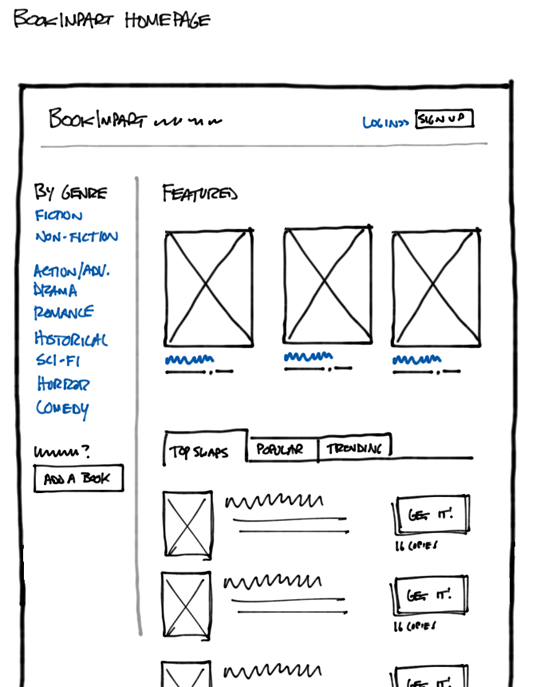 BOOKINPART HOMEPAGE
BOOKINPART
LOGIN>> SIGN UP
BY GENRE
FICTION
NON-FICTION
ACTION/ADV.
DRAMA
ROMANCE
HISTORICAL
SCI-FI
HORROR
COMEDY
?
ADD A BOOK
FEATURED
TOP SWAPS POPULAR TRENDING
GET IT!
16 COPIES
GET IT!
16 COPIES
GET IT!